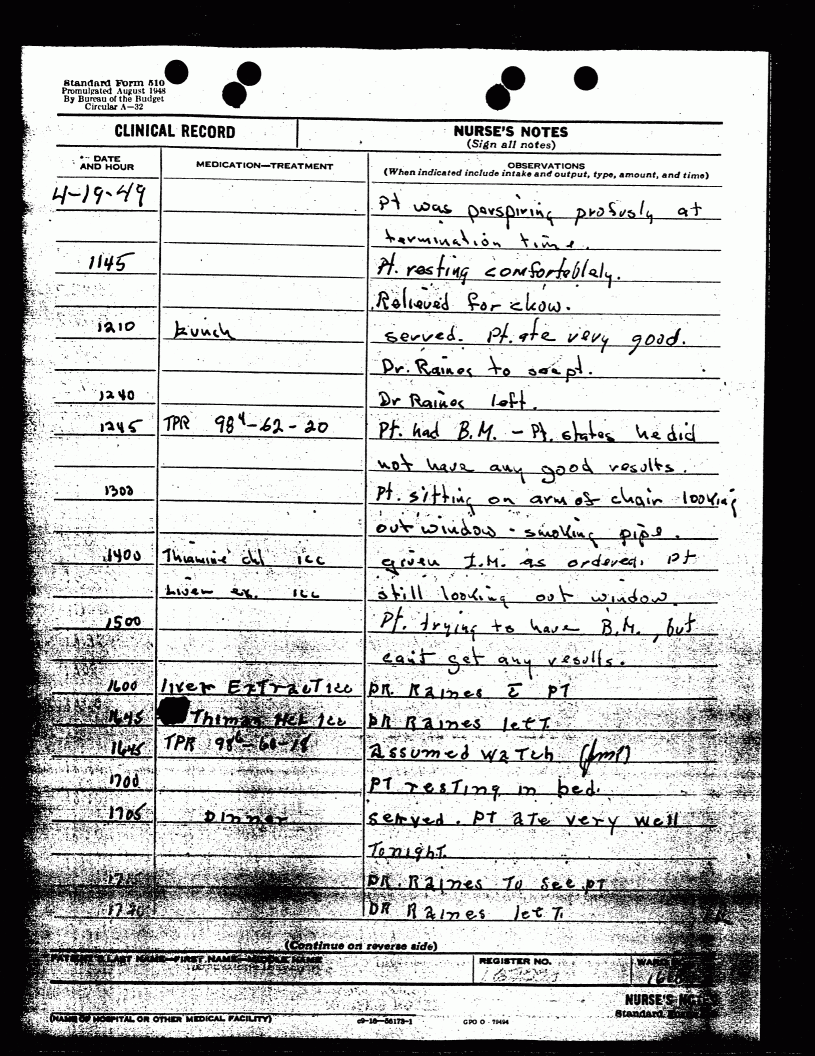 Standard Form 510
Promulgated August 1948
By Bureau of the Budget
Circular A—32
CLINICAL RECORD
NURSE'S NOTES
(Sign all notes)
DATE AND HOUR
MEDICATION—TREATMENT
OBSERVATIONS
(When indicated include intake and output, type, amount, and time)
4-19-49 Pt was perspiring profusly at
termination time.
1145 Pt. resting comforteblaly.
Relieved for chow.
1210 Lunch served. Pt. ate very good.
Dr. Raines to see pt.
1240 Dr Raines left.
1245 TPR 98⁴-62-20 Pt. had B.M. - Pt. states he did
not have any good results.
1300 Pt. sitting on arm of chair looking
out window - smoking pipe.
1400 Thiamine chl 1cc given I.M. as ordered. Pt
Liver ex. 1cc still looking out window.
1500 Pt. trying to have B.M., but
can't get any results.
1600 liver Extract 1cc DR Raines c̄ PT
1645 Thiman Hcl 1cc DR Raines left
1645 TPR 98⁶- Assumed watch
1700 PT resting in bed.
1705 Dinner served. PT ate very well
Tonight.
1715 DR. Raines To see PT
1720 DR Raines left.
(Continue on reverse side)
PATIENT'S LAST NAME—FIRST NAME—MIDDLE NAME
REGISTER NO.
WARD
NURSE'S NOTES
Standard
(NAME OF HOSPITAL OR OTHER MEDICAL FACILITY)
c9—16—56175-1
GPO